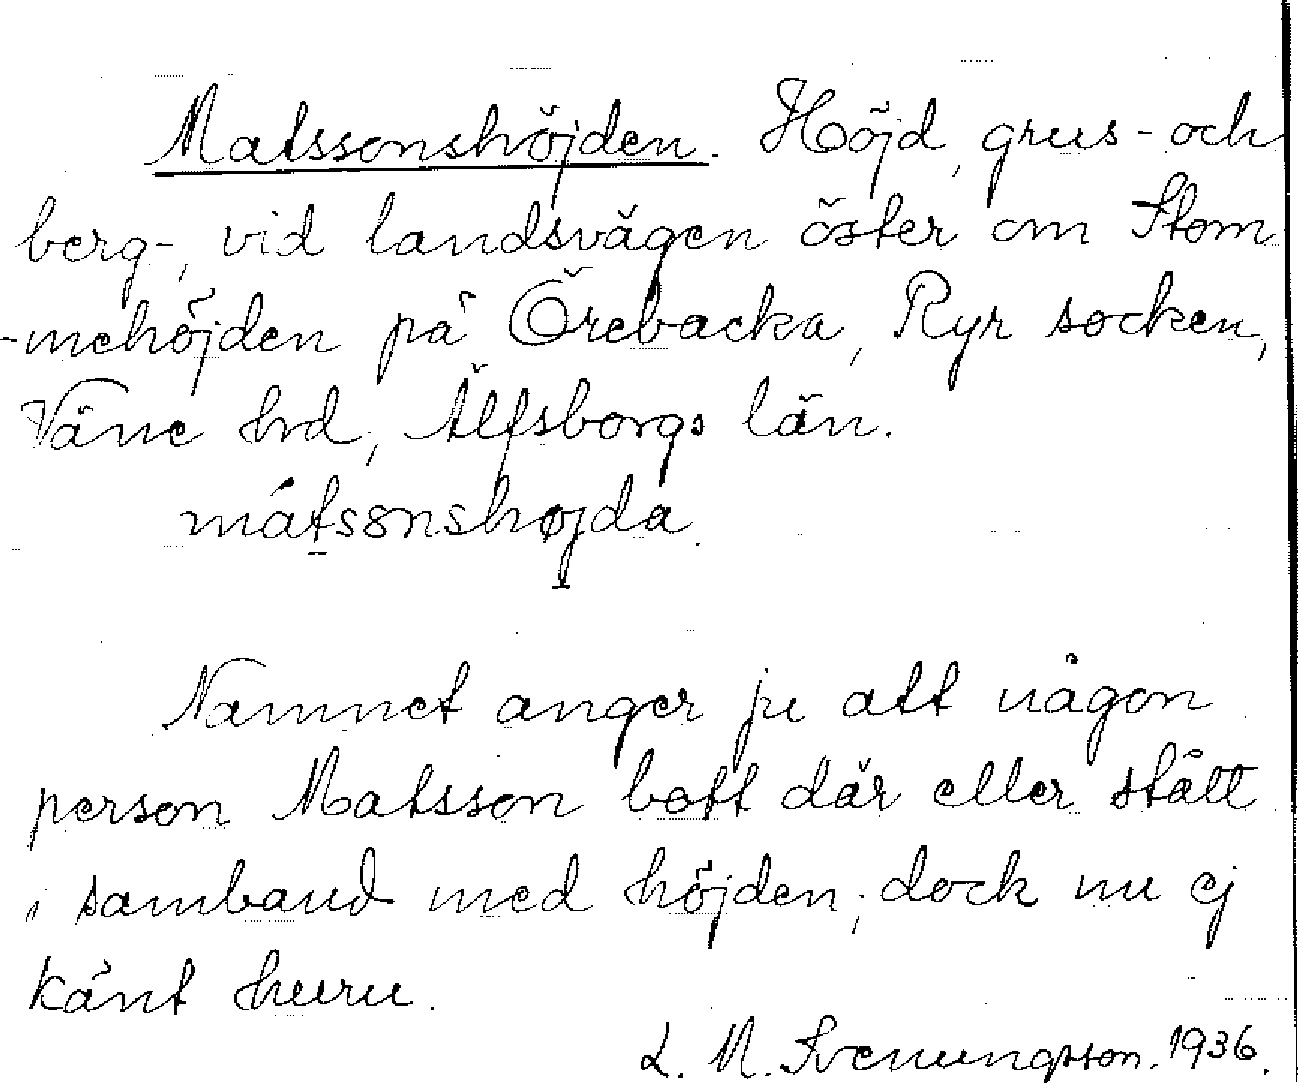 Matssonshöjden. Höjd, grus- och
berg-, vid landsvägen öster om Stom
-mehöjden på Örebacka, Ryr socken,
Väne hrd, Älfsborgs län.
mátsonshøjda.
Namnet anger ju att någon
person Matsson bott där eller stått
i samband med höjden, dock nu ej
känt huru.
L. M. Svenungsson. 1936.